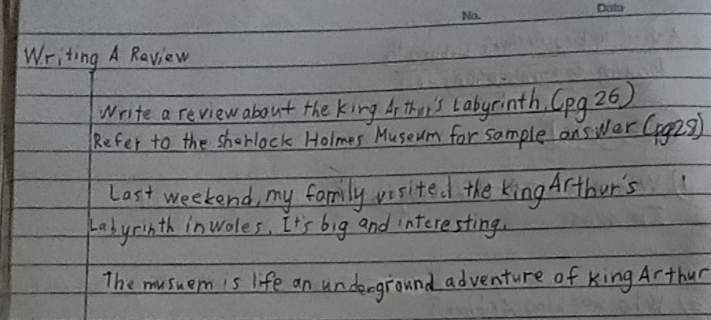 No.
Date
Writing A Review
Write a review about the King Arthur's Labyrinth. (pg 26)
Refer to the sherlock Holmes Museum for sample answer (pg29)
Last weekend, my family visited the King Arthur's
Labyrinth in wales. It's big and interesting.
The musuem is life an underground adventure of King Arthur